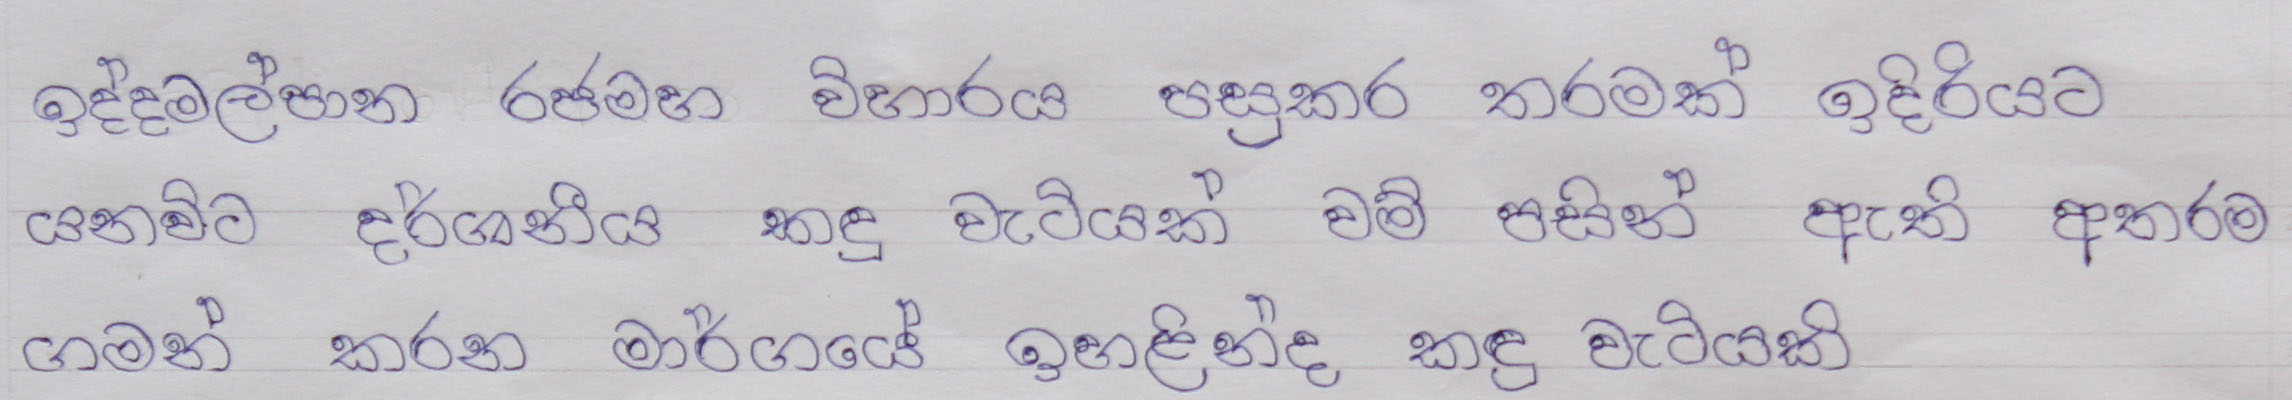 ඉද්දමල්පාන රජමහ විහාරය පසුකර තරමක් ඉදිරියට
යනවිට දර්ශනීය කඳු වැටියක් වම් පසින් ඇති අතරම
ගමන් කරන මාර්ගයේ ඉහළින්ද කඳු වැටියකි